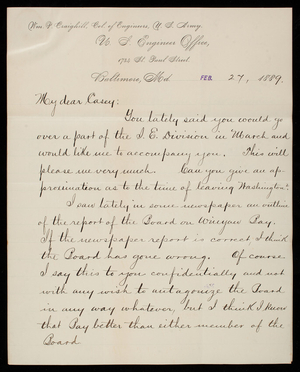 Wm. P. Craighill, Col. of Engineers, U. S. Army.
U. S. Engineer Office,
1724 St. Paul Street
Baltimore, Md. FEB. 27, 1889.
My dear Casey:
You lately said you would go
over a part of the S. E. Division in March and
would like me to accompany you. This will
please me very much. Can you give an ap-
proximation as to the time of leaving Washington?
I saw lately in some newspaper an outline
of the report of the Board on Winyaw Bay.
If the newspaper report is correct I think
the Board has gone wrong. Of course
I say this to you confidentially and not
with any wish to antagonize the Board
in any way whatever, but I think I know
that Bay better than either member of the
Board.